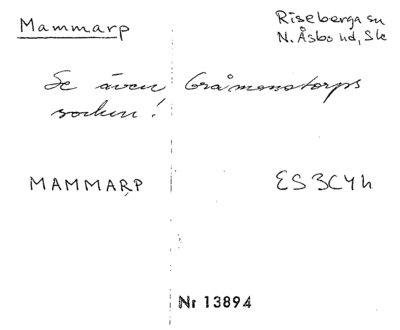 Mammarp
Riseberga sn
N. Åsbo hd, Sk
Se även Gråmanstorps
socken!
MAMMARP
ES 3C4h
Nr 13894